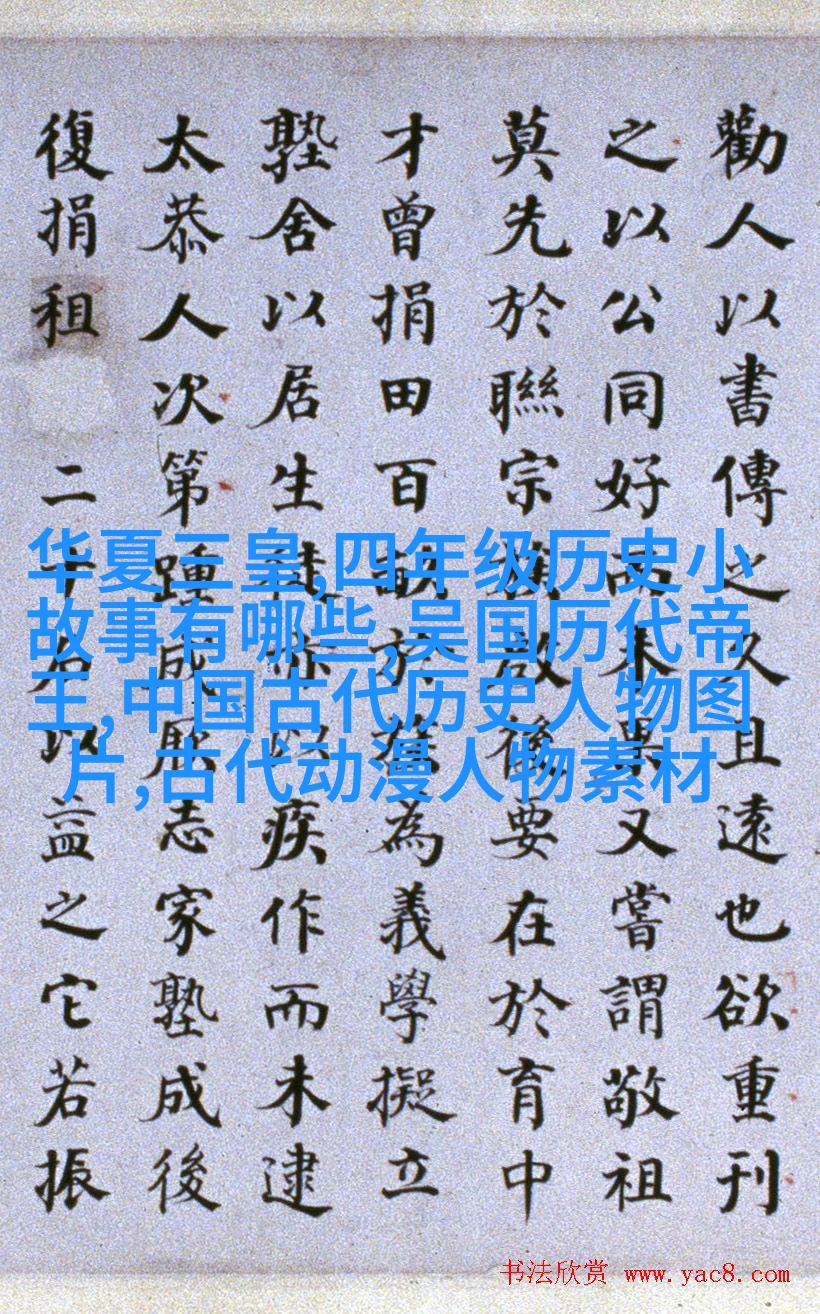 勸人以書傳之久且遠也欲重刊
之以公同好而未果又嘗謂敬祖
莫先於聯宗族後要在於育中
才曾捐田百畝於為義學擬立
塾舍以居生徒亦以疾作而未逮
太恭人次第踵成厥志家塾成後
復捐租二千石以益之它若振
华夏三皇,四年级历史小
故事有哪些,吴国历代帝
王,中国古代历史人物图
片,古代动漫人物素材
书法欣赏 www.yac8.com